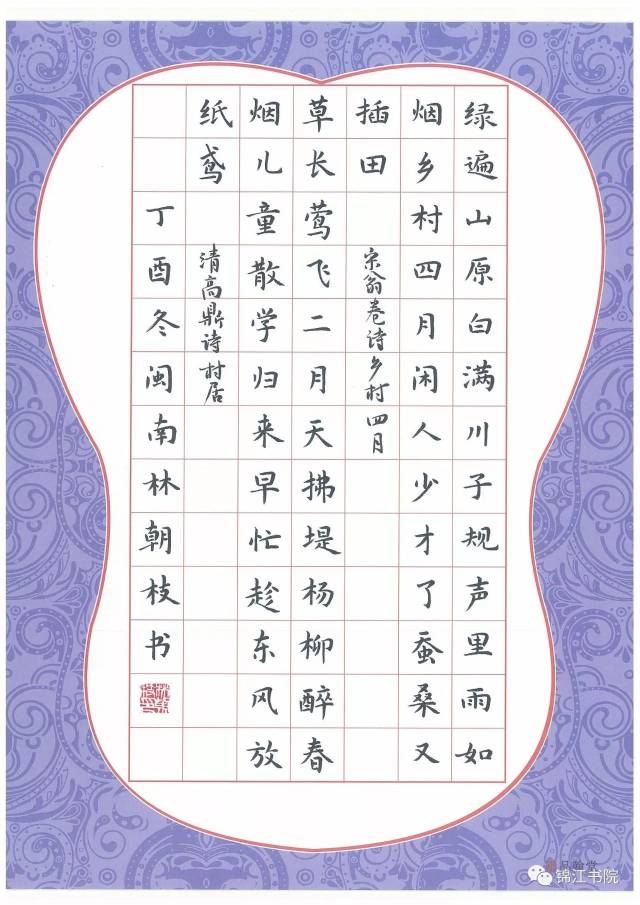 绿遍山原白满川子规声里雨如
烟乡村四月闲人少才了蚕桑又
插田 宋翁卷诗 乡村四月
草长莺飞二月天拂堤杨柳醉春
烟儿童散学归来早忙趁东风放
纸鸢 清高鼎诗 村居
丁酉冬闽南林朝枝书
锦江书院